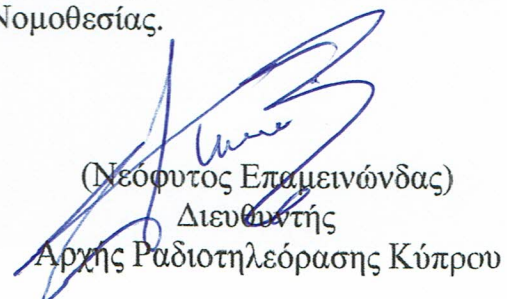 Νομοθεσίας.
(Νεόφυτος Επαμεινώνδας)
Διευθυντής
Αρχής Ραδιοτηλεόρασης Κύπρου